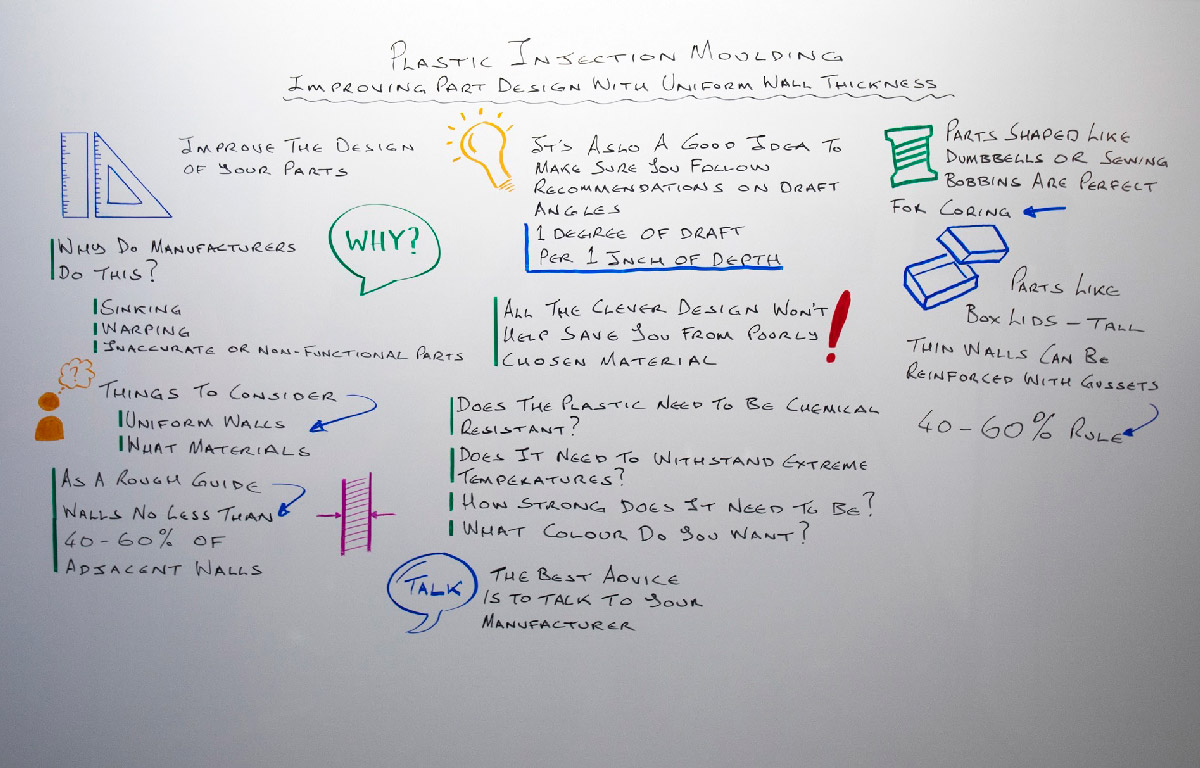 PLASTIC INJECTION MOULDING
IMPROVING PART DESIGN WITH UNIFORM WALL THICKNESS
IMPROVE THE DESIGN
OF YOUR PARTS
WHY DO MANUFACTURERS
DO THIS?
WHY?
SINKING
WARPING
INACCURATE OR NON-FUNCTIONAL PARTS
?
THINGS TO CONSIDER
UNIFORM WALLS
WHAT MATERIALS
AS A ROUGH GUIDE
WALLS NO LESS THAN
40-60% OF
ADJACENT WALLS
IT'S ALSO A GOOD IDEA TO
MAKE SURE YOU FOLLOW
RECOMMENDATIONS ON DRAFT
ANGLES
1 DEGREE OF DRAFT
PER 1 INCH OF DEPTH
ALL THE CLEVER DESIGN WON'T
HELP SAVE YOU FROM POORLY
CHOSEN MATERIAL
!
DOES THE PLASTIC NEED TO BE CHEMICAL
RESISTANT?
DOES IT NEED TO WITHSTAND EXTREME
TEMPERATURES?
HOW STRONG DOES IT NEED TO BE?
WHAT COLOUR DO YOU WANT?
TALK
THE BEST ADVICE
IS TO TALK TO YOUR
MANUFACTURER
PARTS SHAPED LIKE
DUMBBELLS OR SEWING
BOBBINS ARE PERFECT
FOR CORING
PARTS LIKE
BOX LIDS - TALL
THIN WALLS CAN BE
REINFORCED WITH GUSSETS
40-60% RULE